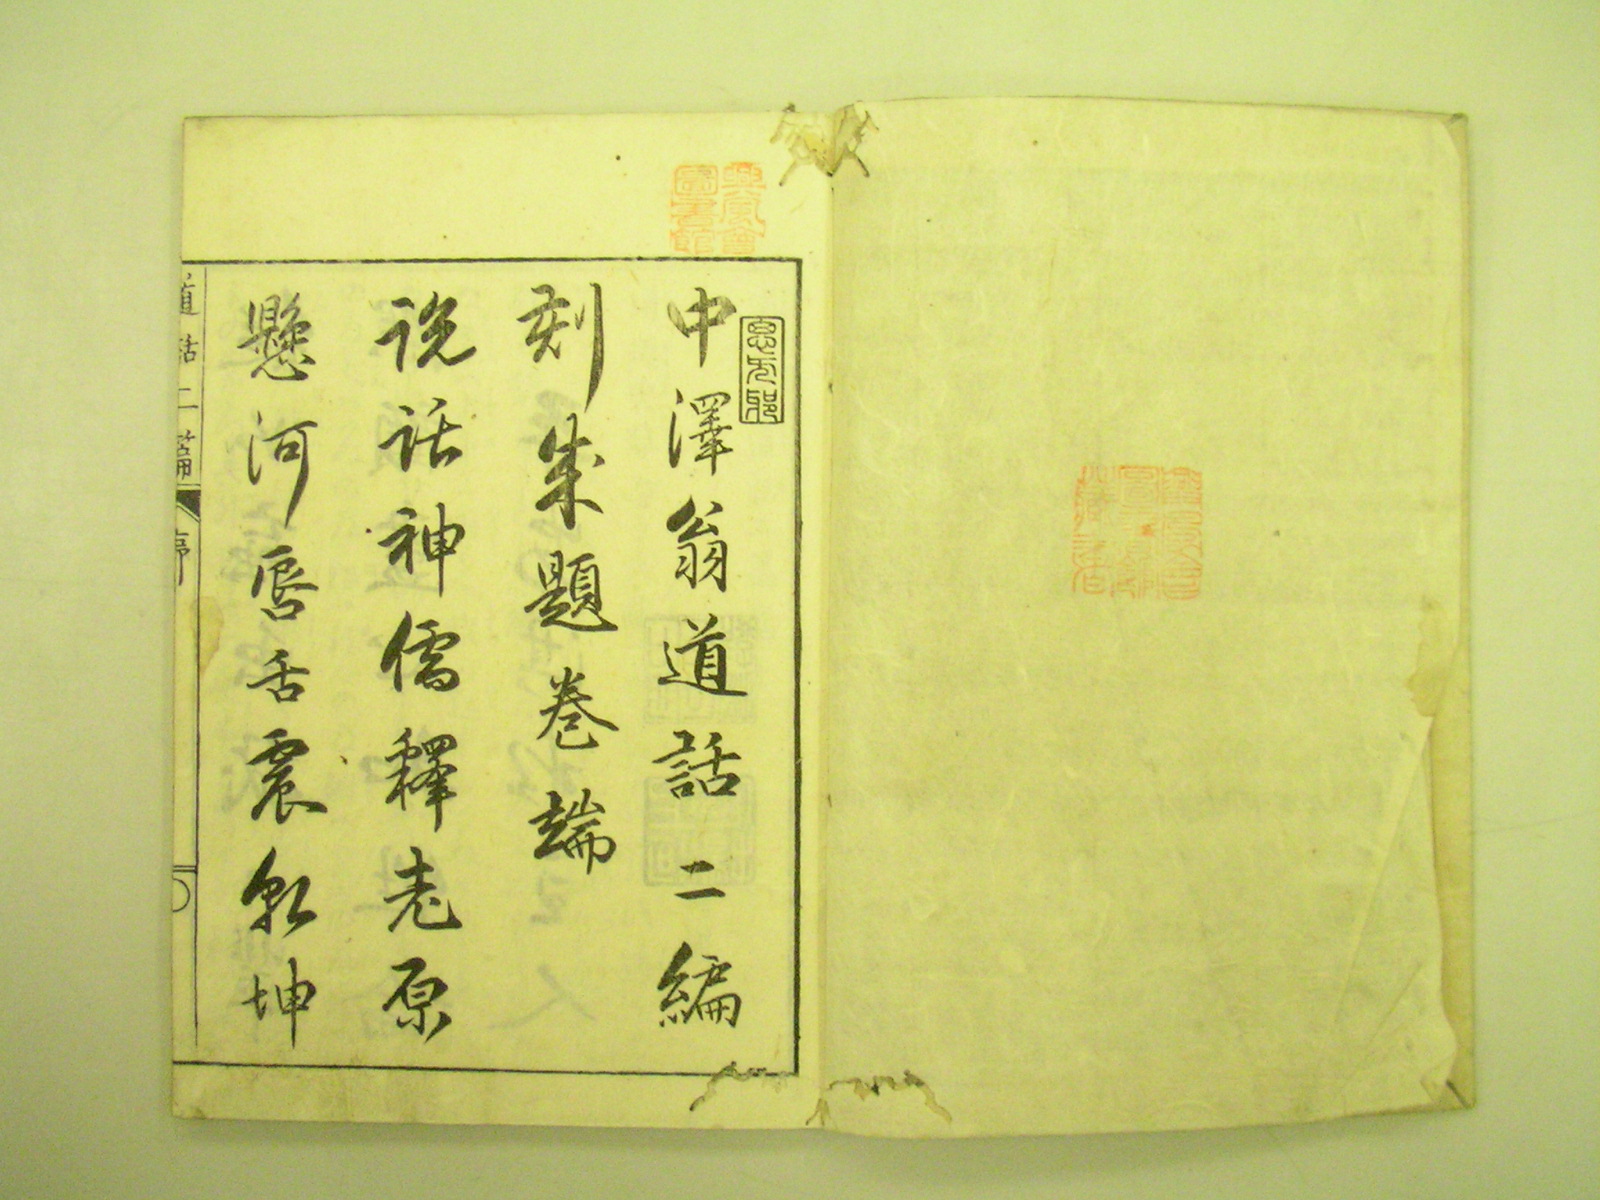 中澤翁道話二編
刻成題卷端
説話神儒釋老原
懸河唇舌震乾坤
道話二篇
序
思无邪